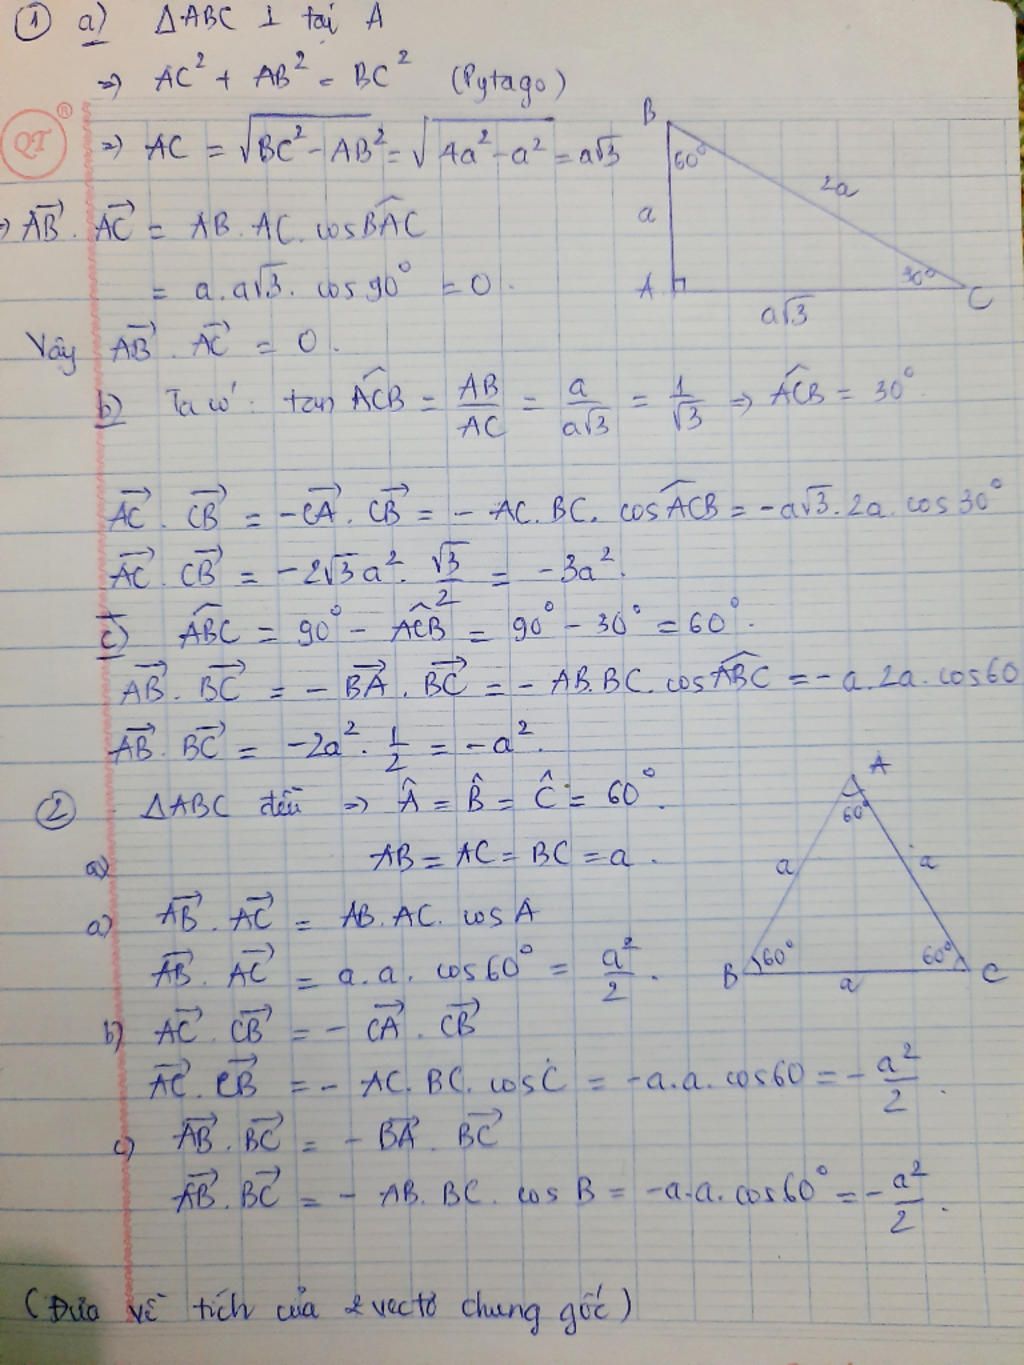 ① a) ΔABC ⊥ tại A
=> AC² + AB² = BC² (Pytago)
QT ®
=> AC = √(BC² - AB²) = √(4a² - a²) = a√3
=> \vec{AB} . \vec{AC} = AB. AC. cos\widehat{BAC}
= a. a√3. cos90° = 0.
Vậy \vec{AB} . \vec{AC} = 0.
B
60°
2a
a
A
30°
C
a√3
b) Ta có: tan \widehat{ACB} = AB/AC = a/a√3 = 1/√3 => \widehat{ACB} = 30°.
\vec{AC} . \vec{CB} = -\vec{CA} . \vec{CB} = - AC. BC. cos\widehat{ACB} = -a√3. 2a. cos30°
\vec{AC} . \vec{CB} = -2√3a². √3/2 = -3a².
c) \widehat{ABC} = 90° - \widehat{ACB} = 90° - 30° = 60°.
\vec{AB} . \vec{BC} = - \vec{BA} . \vec{BC} = - AB. BC. cos\widehat{ABC} = - a. 2a. cos60
\vec{AB} . \vec{BC} = -2a². 1/2 = -a².
② ΔABC đều => Â = B̂ = Ĉ = 60°.
a) AB = AC = BC = a.
a) \vec{AB} . \vec{AC} = AB. AC. cosA
\vec{AB} . \vec{AC} = a. a. cos60° = a²/2.
A
60°
a
a
B
60°
60°
C
a
b) \vec{AC} . \vec{CB} = - \vec{CA} . \vec{CB}
\vec{AC} . \vec{CB} = - AC. BC. cosC = -a.a. cos60 = - a²/2.
c) \vec{AB} . \vec{BC} = - \vec{BA} . \vec{BC}
\vec{AB} . \vec{BC} = - AB. BC. cosB = -a.a. cos60° = - a²/2.
(Đưa về tích của 2 vectơ chung gốc)